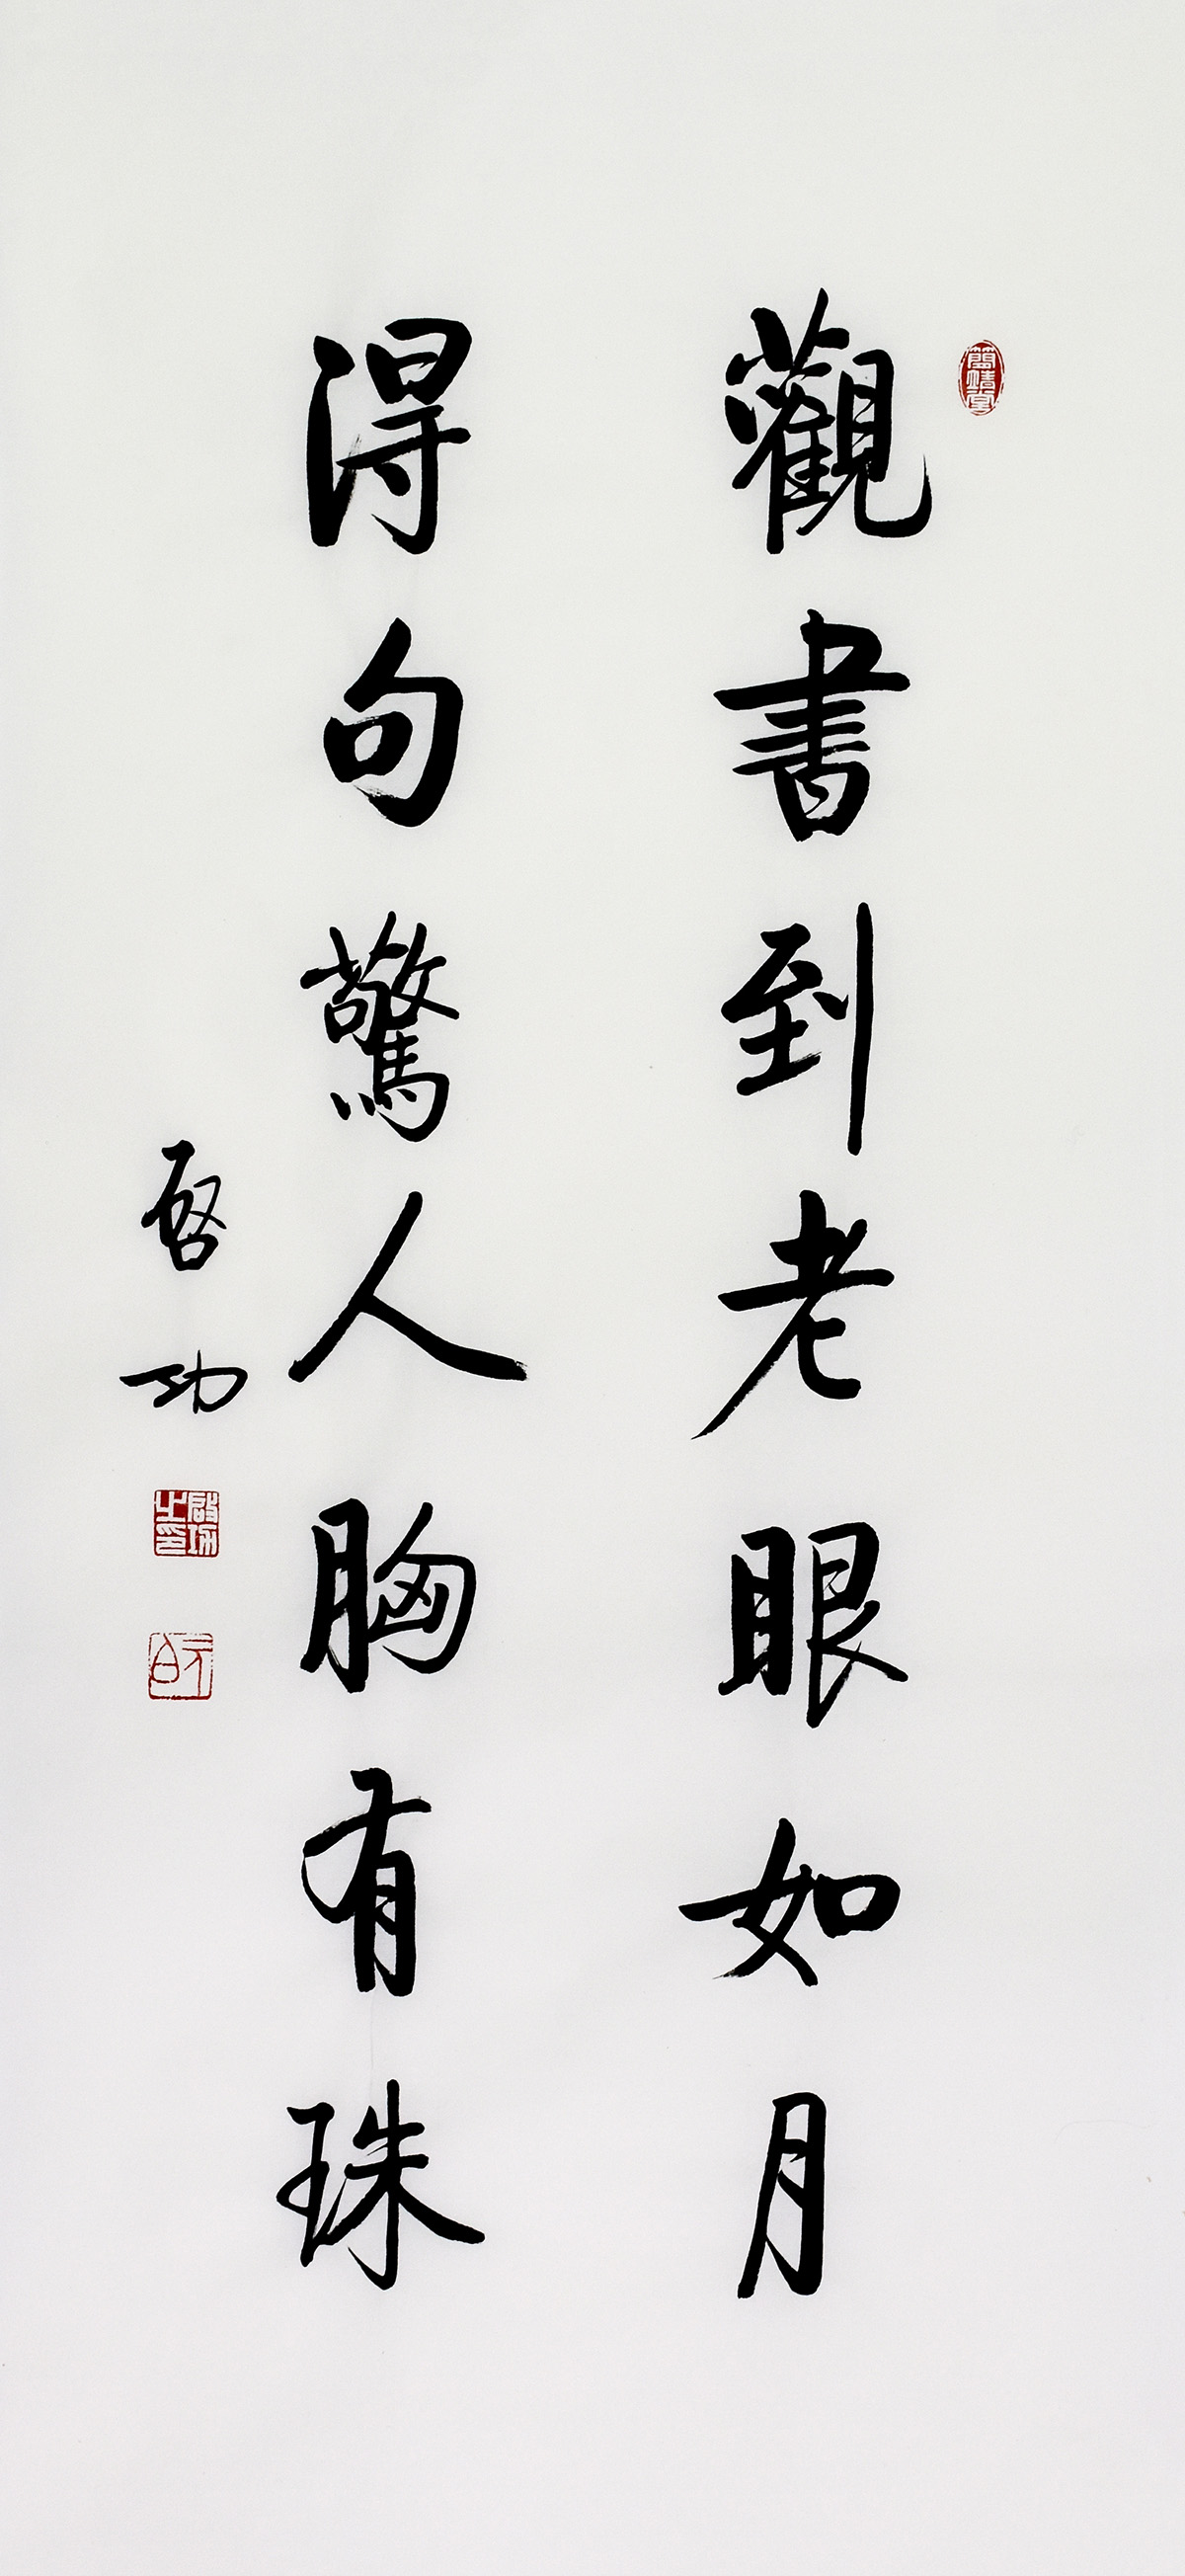 觀書到老眼如月
得句驚人胸有珠
啓功
簡靖堂
啟功之印
元白